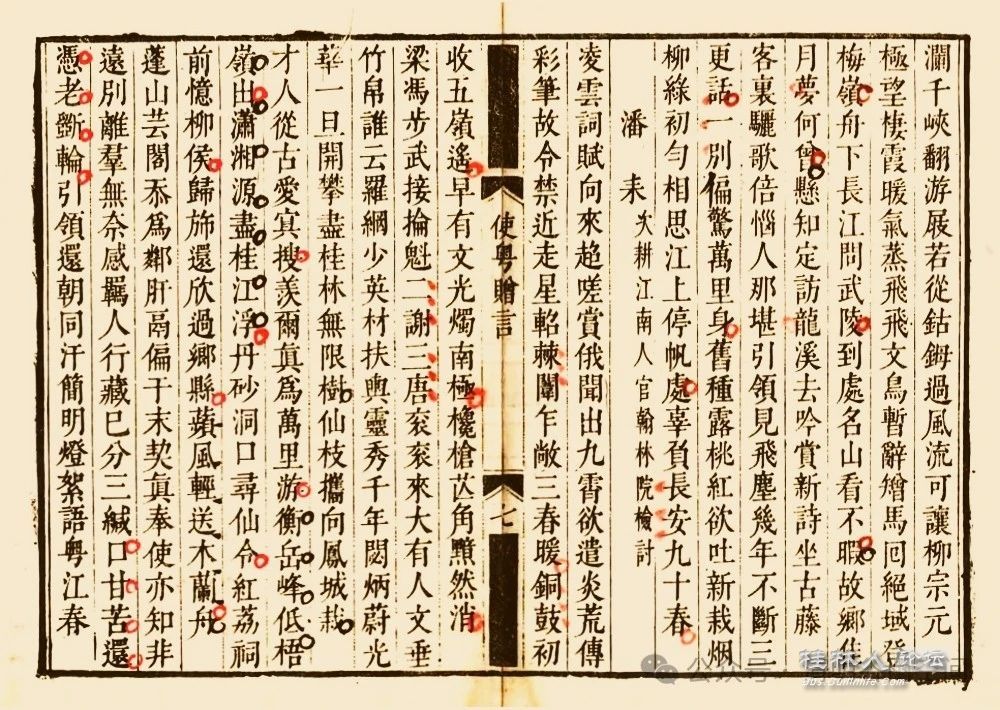 瀾千峽翻游屐若從鈷鉧過風流可讓柳宗元
極望棲霞暖氣蒸飛飛文鳥暫辭矰馬囘絕域登
梅嶺舟下長江問武陵到處名山看不暇故鄉佳
月夢何曾懸知定訪龍溪去吟賞新詩坐古藤
客裏驪歌倍惱人那堪引領見飛塵幾年不斷三
更話一別偏驚萬里身舊種露桃紅欲吐新栽烟
柳綠初勻相思江上停帆處辜負長安九十春
潘耒 次耕江南人官翰林院檢討
凌雲詞賦向來趨嗟賞俄聞出九霄欲遣炎荒傳
彩筆故令禁近走星軺棘闈乍敞三春暖銅鼓初
使粵贈言 七
收五嶺遙早有文光燭南極欃槍角黯然消
梁馮步武接掄魁二謝三唐衮衮來大有人文垂
竹帛誰云羅網少英材扶輿靈秀千年閟炳蔚光
華一旦開攀盡桂林無限樹仙枝攜向鳳城栽
才人從古愛㝠搜羨爾眞爲萬里游衡岳峰低梧
嶺出瀟湘源盡桂江浮丹砂洞口尋仙令紅荔祠
前憶柳侯歸斾還欣過鄉縣蘋風輕送木蘭舟
蓬山芸閣忝爲鄰肝鬲偏于末契眞奉使亦知非
遠別離羣無奈感羈人行藏已分三緘口甘苦還
憑老斵輪引領還朝同汗簡明燈絮語粤江春
公众号
桂林人论坛
bbs.guilinlife.com